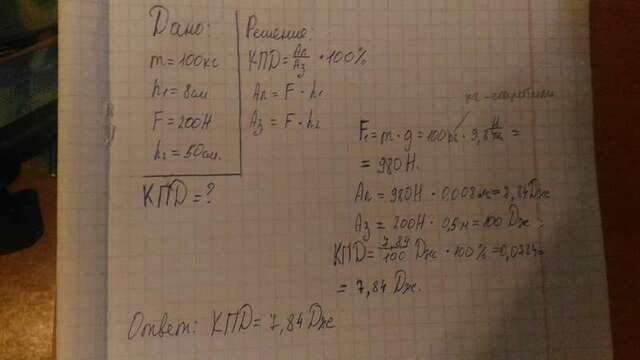 Дано:
m = 100кг
h₁ = 8см
F = 200Н
h₂ = 50см.
КПД = ?
Решение:
КПД = Ап/Аз · 100%
Ап = F · h₁
Аз = F · h₂
кг-сократили
F₁ = m · g = 100кг · 9,8 Н/кг =
= 980Н.
Ап = 980Н · 0,008м = 7,84Дж
Аз = 200Н · 0,5м = 100 Дж
КПД = 7,84/100 Дж · 100% = 0,0784=
= 7,84 Дж.
Ответ: КПД = 7,84 Дж